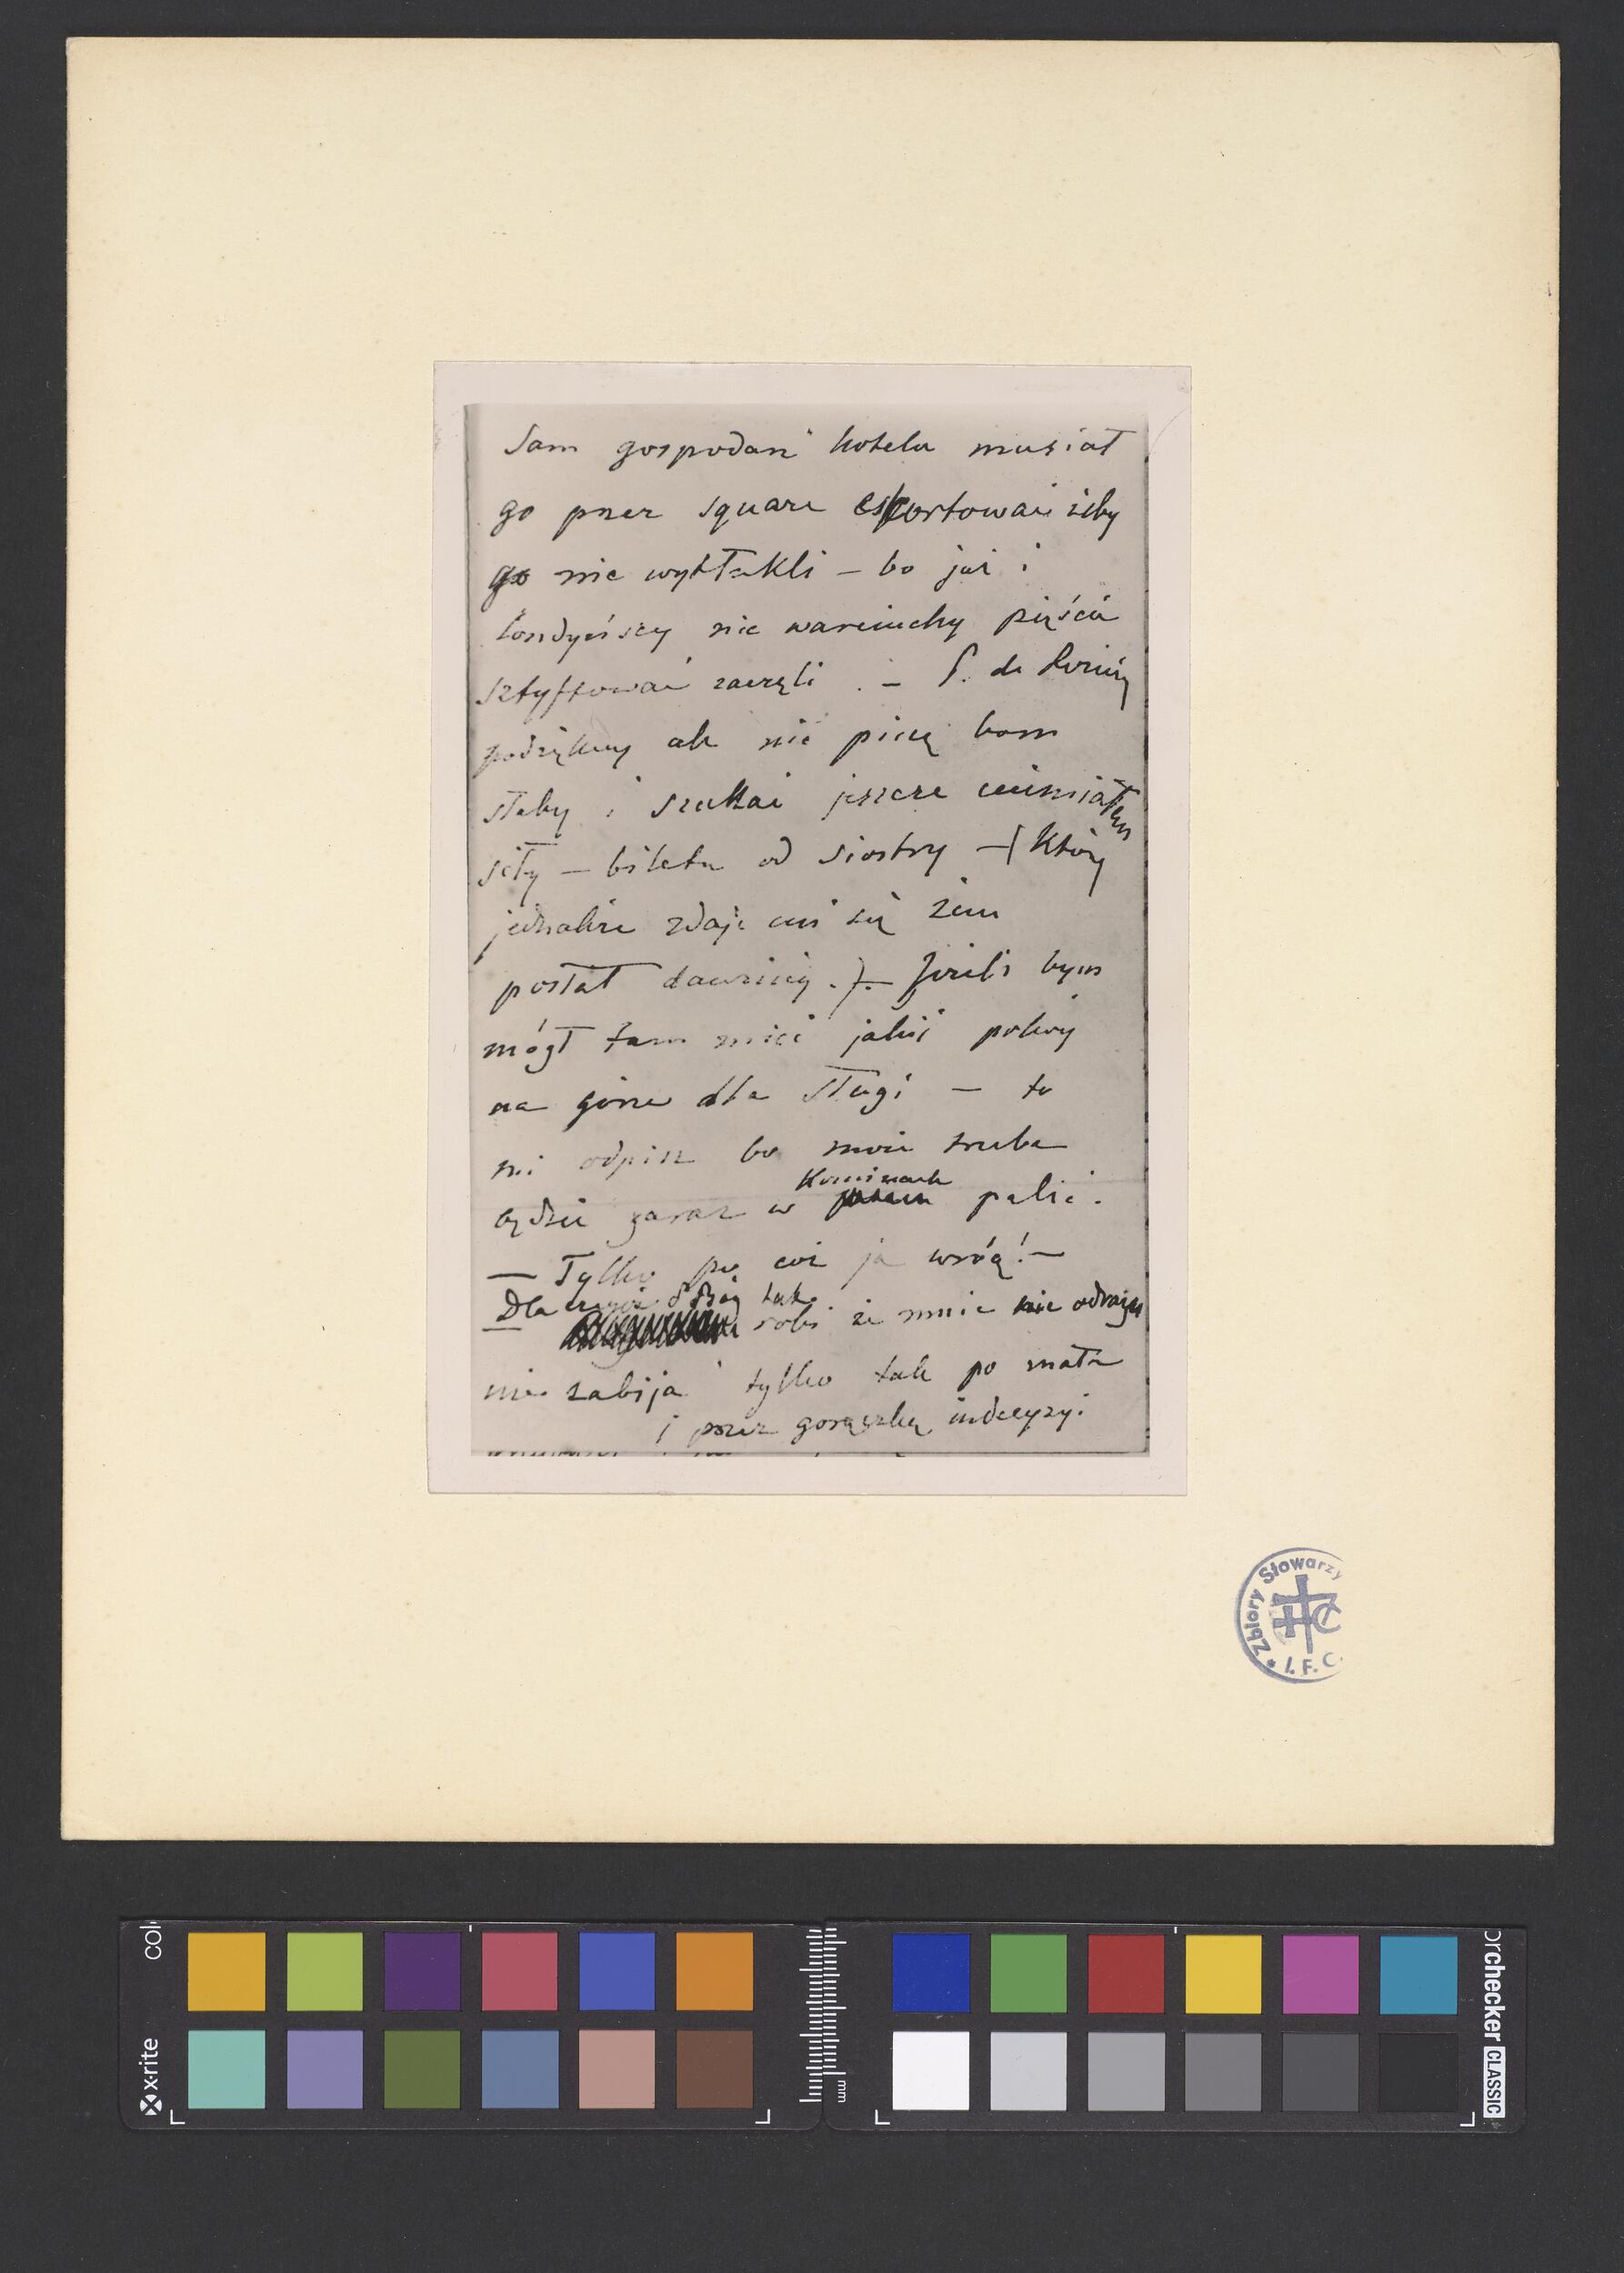 Sam gospodarz hotelu musiał
go przez square eskortować żeby
go nie wytłukli – bo już i
Londyńscy nic
sztyftować zaczęli . – P. de Rozière
podziękuj ale nie piszę bom
słaby i szukać jeszcze nie miałem
siły – biletu od siostry – ( który
jednakże zdaje mi się żem
posłał dawniej . ) – Jeżeli bym
mógł tam mieć jakiś pokój
na górze dla sługi – to
mi odpisz bo może trzeba
będzie zaraz w kominach palić .
— Tylko po cóż ja wrócę ! —
Dla czegóż Bóg tak
robi że mnie nie odrazu
nie zabija tylko tak po mału
i przez gorączkę indecyzyi .
Zbiory Stowarzy
* I. F. C.
x-rite
mm
checker CLASSIC